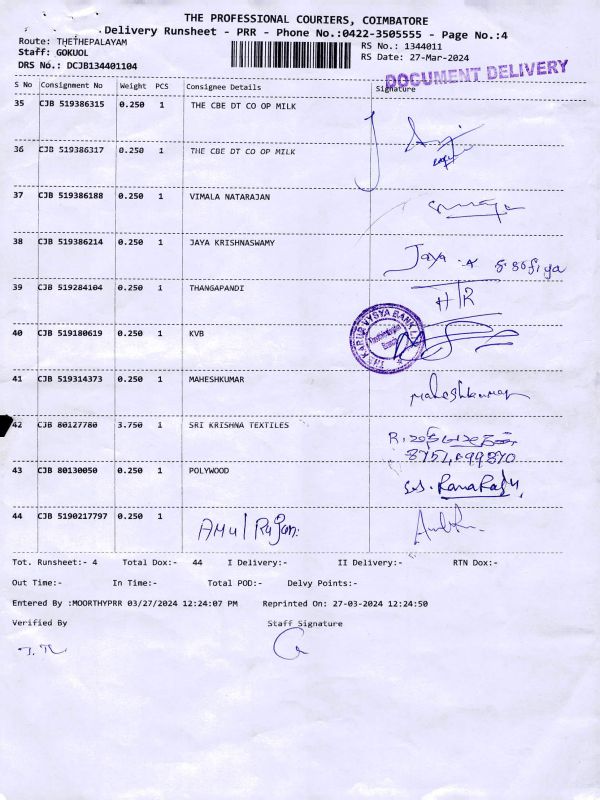 THE PROFESSIONAL COURIERS, COIMBATORE
Delivery Runsheet - PRR - Phone No.:0422-3505555 - Page No.:4
Route: THETHEPALAYAM
RS No.: 1344011
Staff: GOKUOL
RS Date: 27-Mar-2024
DRS No.: DCJB134401104
DOCUMENT DELIVERY
S No Consignment No Weight PCS Consignee Details Signature
35 CJB 519386315 0.250 1 THE CBE DT CO OP MILK
36 CJB 519386317 0.250 1 THE CBE DT CO OP MILK
37 CJB 519386188 0.250 1 VIMALA NATARAJAN
38 CJB 519386214 0.250 1 JAYA KRISHNASWAMY Jaya
39 CJB 519284104 0.250 1 THANGAPANDI
40 CJB 519180619 0.250 1 KVB THE KARUR VYSYA BANK
41 CJB 519314373 0.250 1 MAHESHKUMAR Maheshkumar
42 CJB 80127780 3.750 1 SRI KRISHNA TEXTILES
43 CJB 80130050 0.250 1 POLYWOOD
44 CJB 5190217797 0.250 1 AMUl Rajan
Tot. Runsheet:- 4 Total Dox:- 44 I Delivery:- II Delivery:- RTN Dox:-
Out Time:- In Time:- Total POD:- Delvy Points:-
Entered By :MOORTHYPRR 03/27/2024 12:24:07 PM Reprinted On: 27-03-2024 12:24:50
Verified By Staff Signature